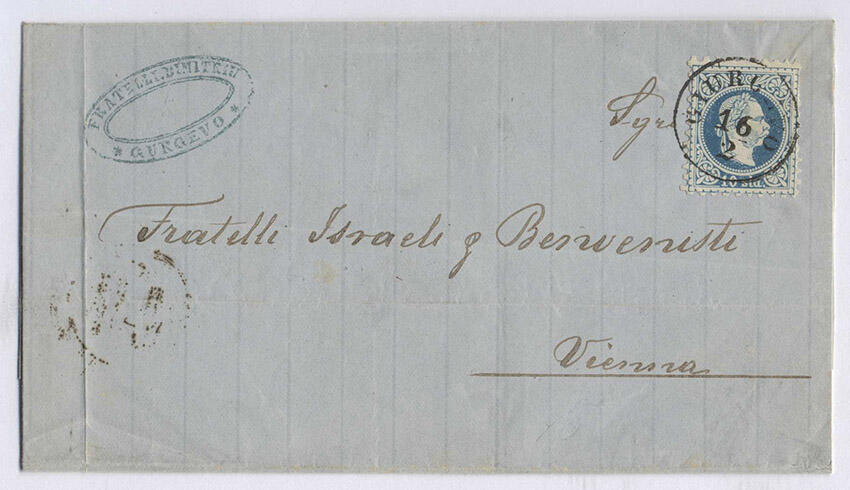 FRATELLI DIMITRIJ
* GURGEVO *
GIURGEVO
16
2
10 sld.
Fratelli Israeli & Benvenisti
Vienna